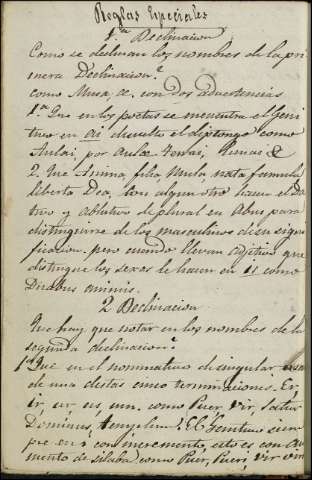 Reglas Especiales
1.ª Declinacion
Como se declinan los nombres de la pri
mera Declinacion?
como Musa æ. con dos advertencias
1.ª Que en los poetas se encuentra el Geni
tivo en ai disuelto el diptongo como
Aulai, por aulæ
2. Que Anima, filia, Mula, nata famula
liberta Dea, con algun otro hacen el Da
tivo y ablativo de plural en abus para
distinguirse de los masculinos de su signi
ficacion. pero cuando llevan adjetivo que
distingue los sexos le hacen en is como
Duabus animis.
2 Declinacion
Que hay que notar en los nombres de la
segunda declinacion?
1.ª Que en el nominativo de singular
de una destas cinco terminaciones. Er,
ir, ur, us, um. como Puer, Vir, Satur
Dominus, templum. El Genitivo siem
pre en i con incremento, esto es con au
mento de silaba, como Puer, Pueri, Vir viri